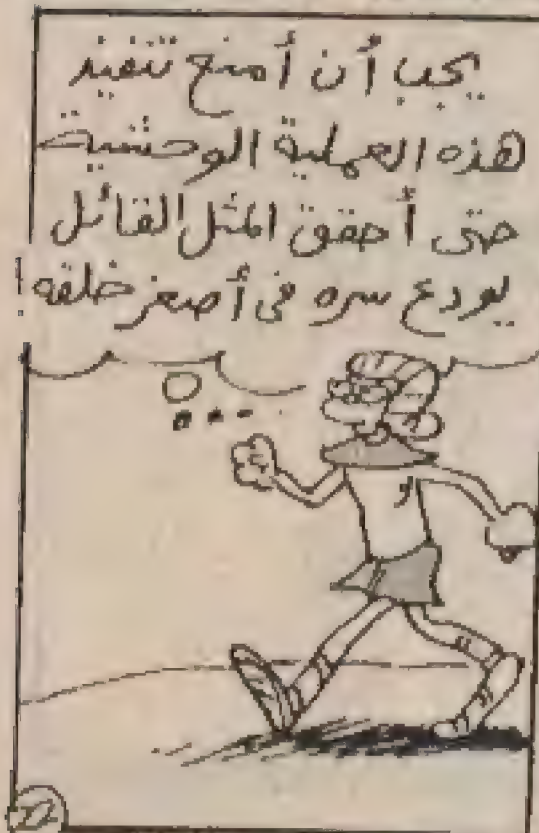 يجب أن أمنع تنفيذ
هذه العملية الوحشية
حتى أحقق المثل القائل
يودع سره فى أصغر خلقه
و